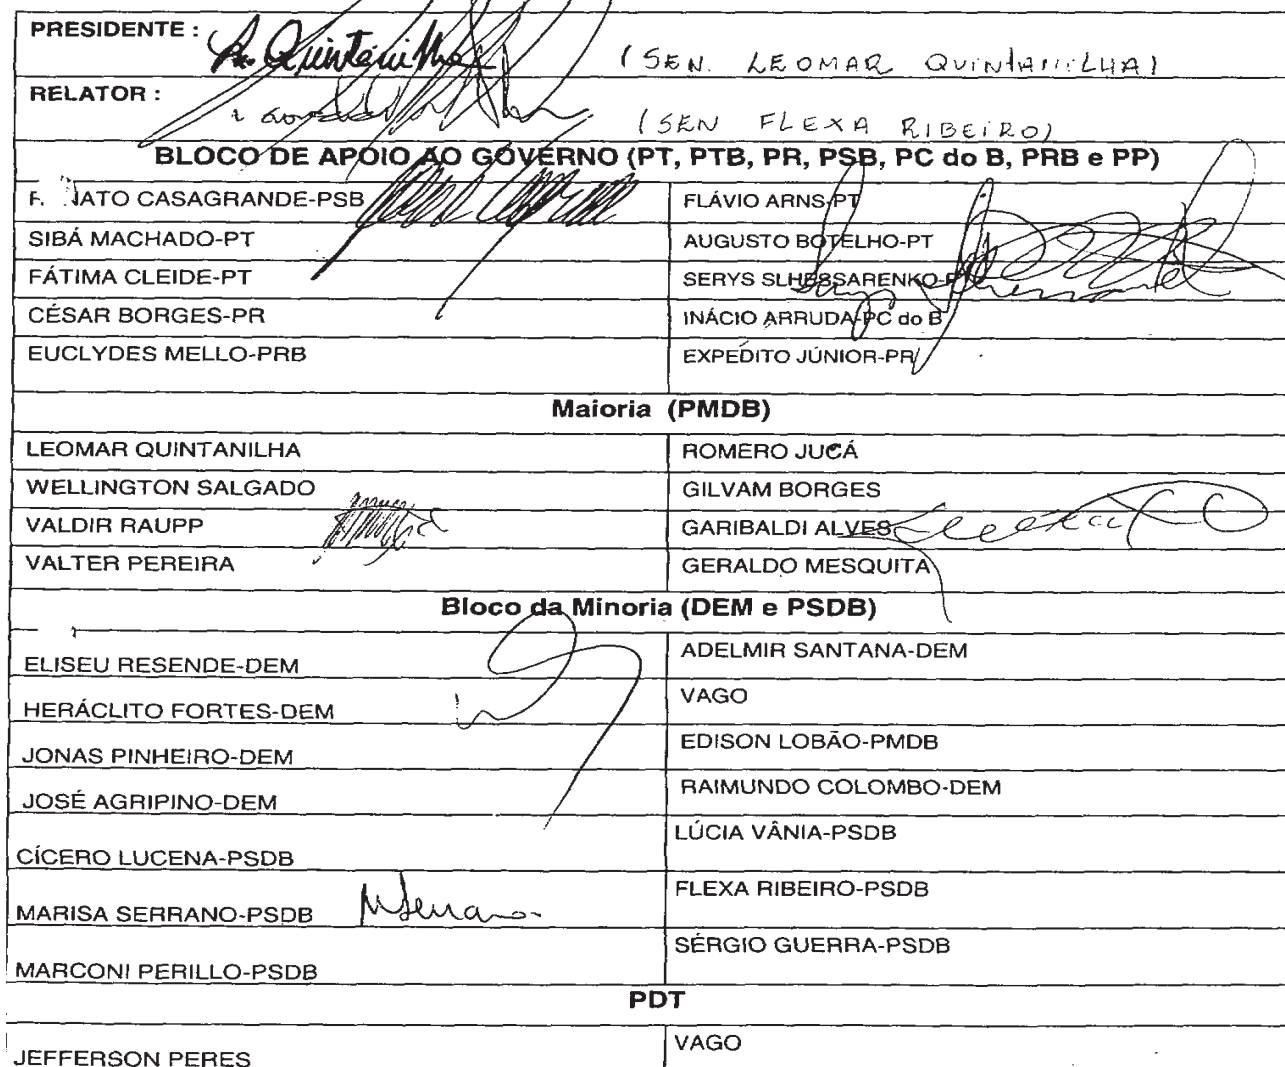 PRESIDENTE : A. Quintanilha (SEN. LEOMAR QUINTANILHA)
RELATOR : (SEN FLEXA RIBEIRO)
BLOCO DE APOIO AO GOVERNO (PT, PTB, PR, PSB, PC do B, PRB e PP)
NATO CASAGRANDE-PSB FLÁVIO ARNS-PT
SIBÁ MACHADO-PT AUGUSTO BOTELHO-PT
FÁTIMA CLEIDE-PT SERYS SLHESSARENKO-P
CÉSAR BORGES-PR INÁCIO ARRUDA-PC do B
EUCLYDES MELLO-PRB EXPEDITO JÚNIOR-PR
Maioria (PMDB)
LEOMAR QUINTANILHA ROMERO JUCÁ
WELLINGTON SALGADO GILVAM BORGES
VALDIR RAUPP GARIBALDI ALVES
VALTER PEREIRA GERALDO MESQUITA
Bloco da Minoria (DEM e PSDB)
ELISEU RESENDE-DEM ADELMIR SANTANA-DEM
HERÁCLITO FORTES-DEM VAGO
JONAS PINHEIRO-DEM EDISON LOBÃO-PMDB
JOSÉ AGRIPINO-DEM RAIMUNDO COLOMBO-DEM
CÍCERO LUCENA-PSDB LÚCIA VÂNIA-PSDB
MARISA SERRANO-PSDB MSerrano FLEXA RIBEIRO-PSDB
MARCONI PERILLO-PSDB SÉRGIO GUERRA-PSDB
PDT
JEFFERSON PERES VAGO